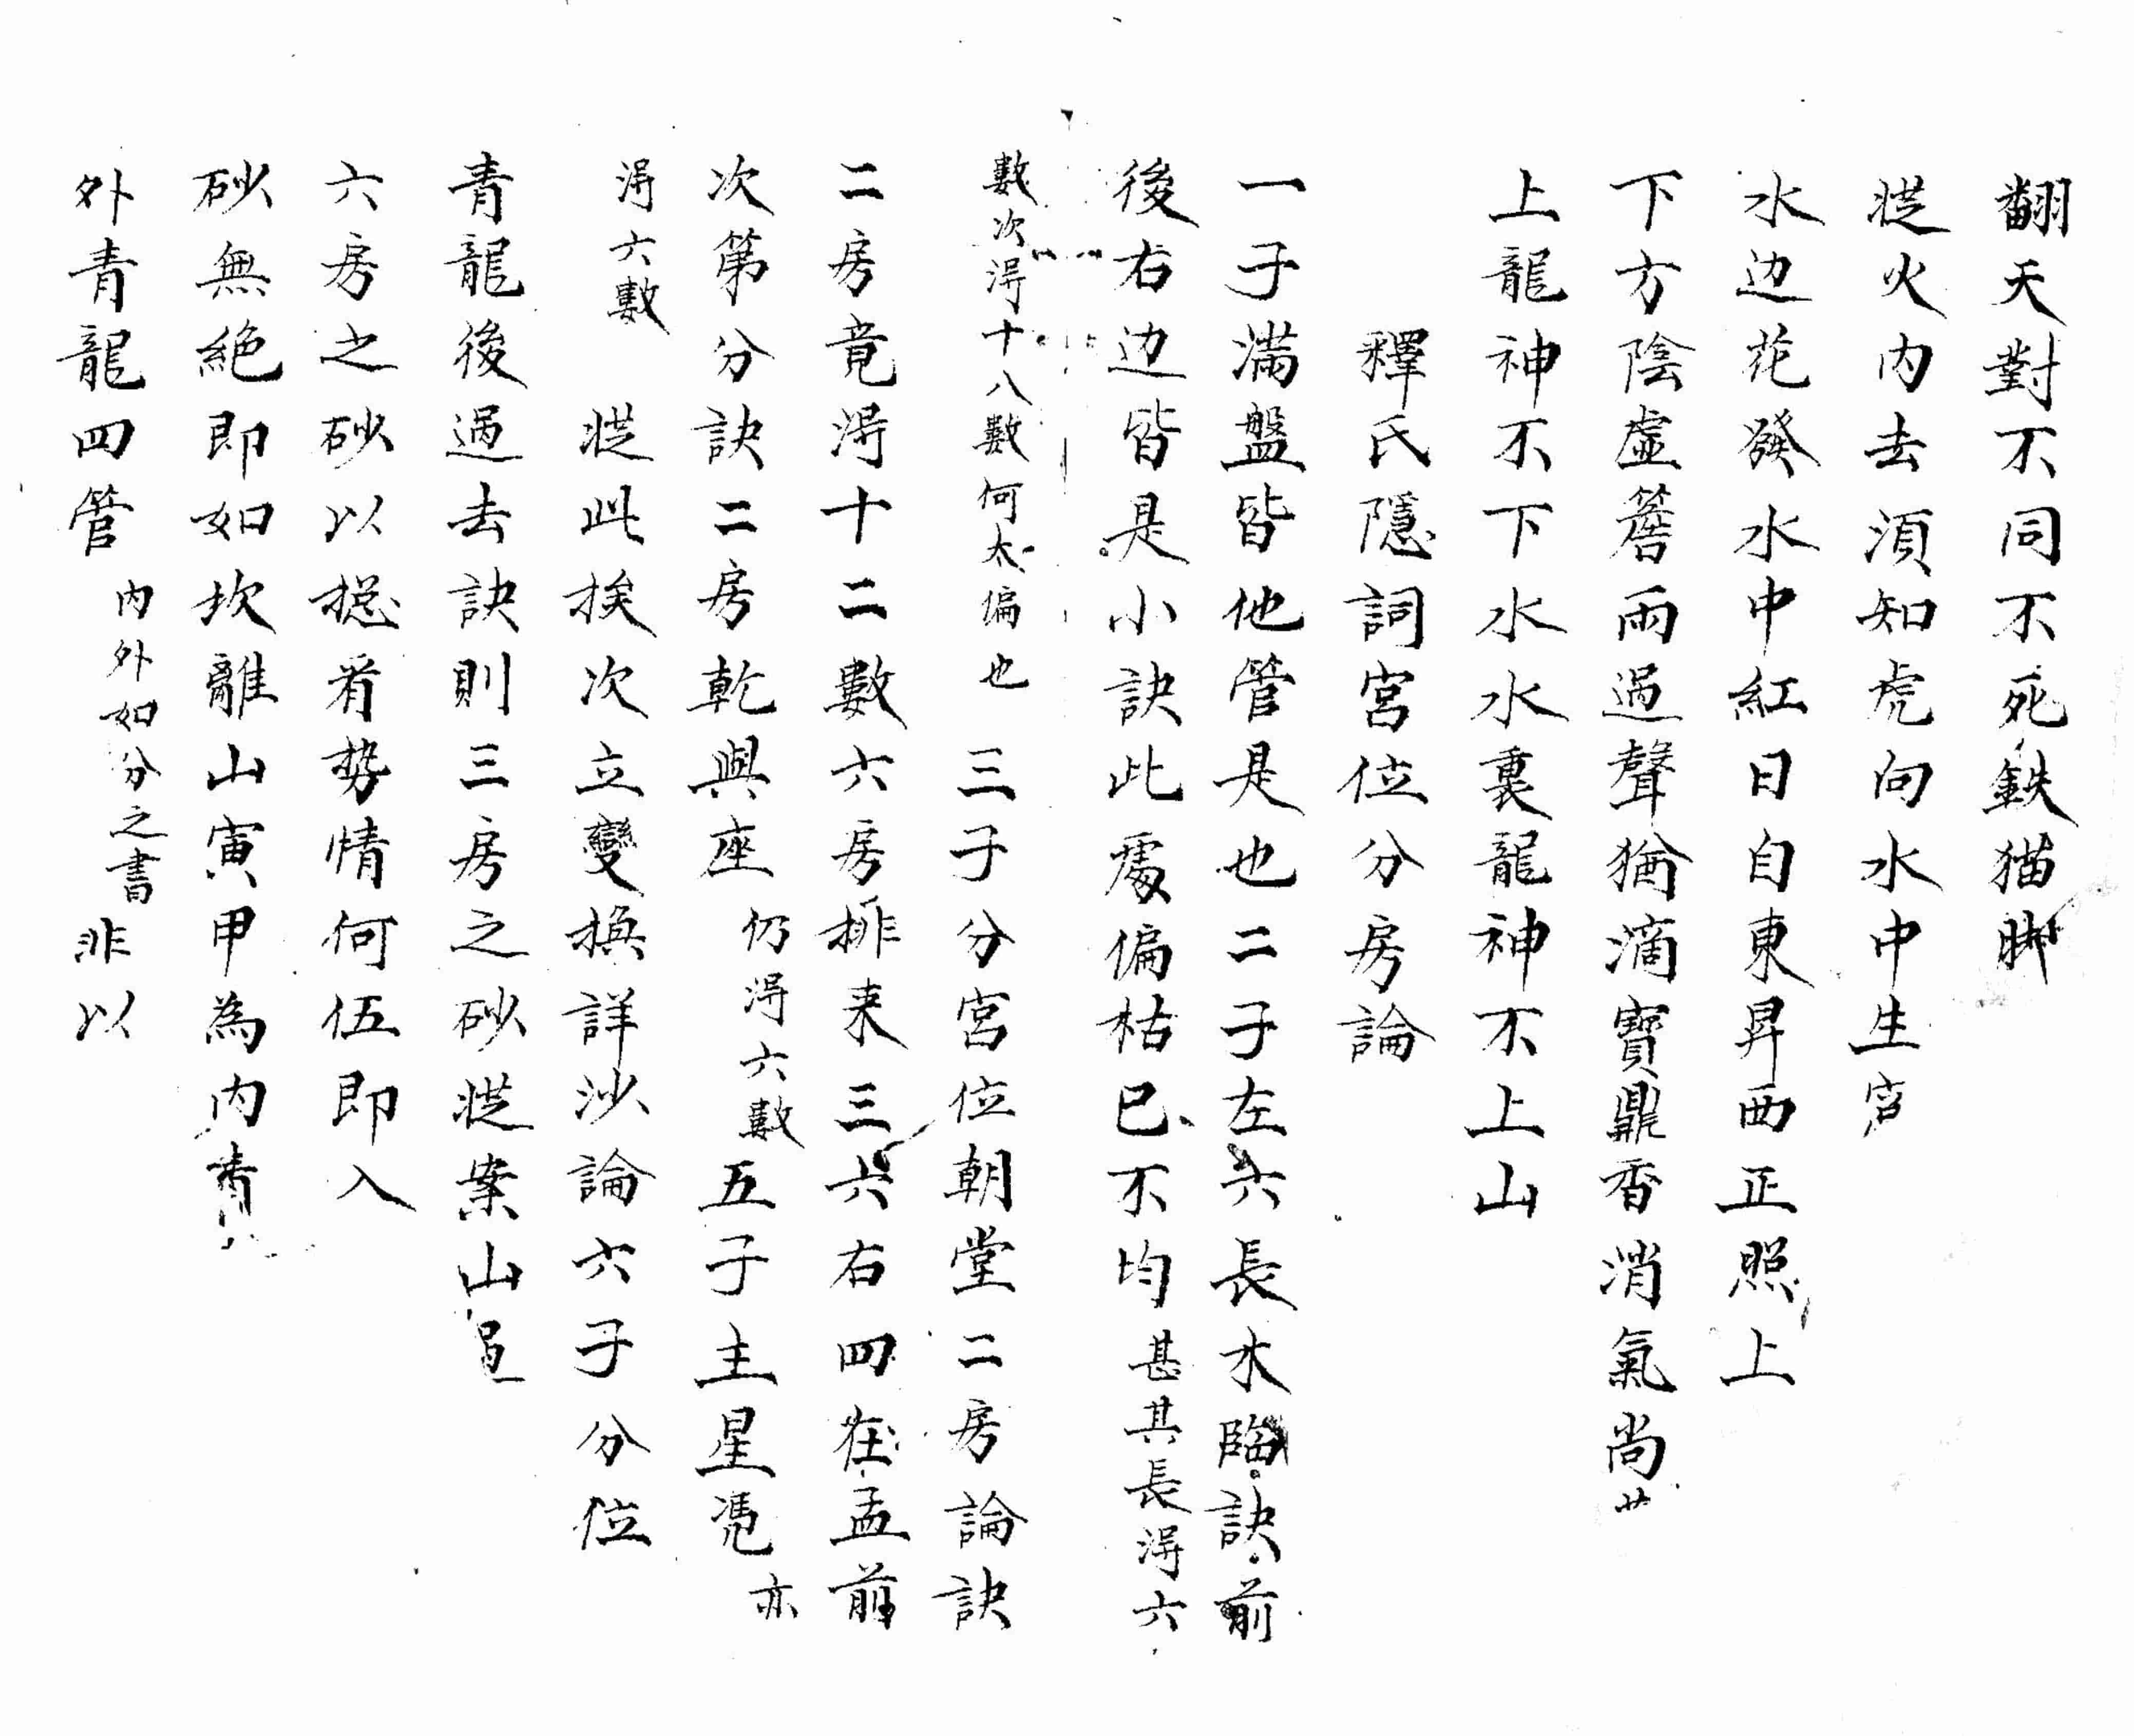 翻天對不同不死鉄猫脚
從火內去須知虎向水中生
水边花發水中紅日自東昇西正照上
下方陰虛簷雨過聲猶滴寶鼎香消氣尚
上龍神不下水水裏龍神不上山
釋氏隱詞宮位分房論
一子滿盤皆他管是也二子左六長水臨訣前
後右边皆是小訣此處偏枯已不均甚其長淂六
數次淂十八數何太偏也三子分宮位朝堂二房論訣
二房竟淂十二數六房排来三六右四在孟前
次第分訣二房乾與座仍淂六數五子主星凴亦
淂六數從此挨次立變換詳沙論六子分位
青龍後過去訣則三房之砂從案山
六房之砂以摠看势情何伍即入
砂無絶即如坎離山寅甲為內青
外青龍四管內外如分之書非以